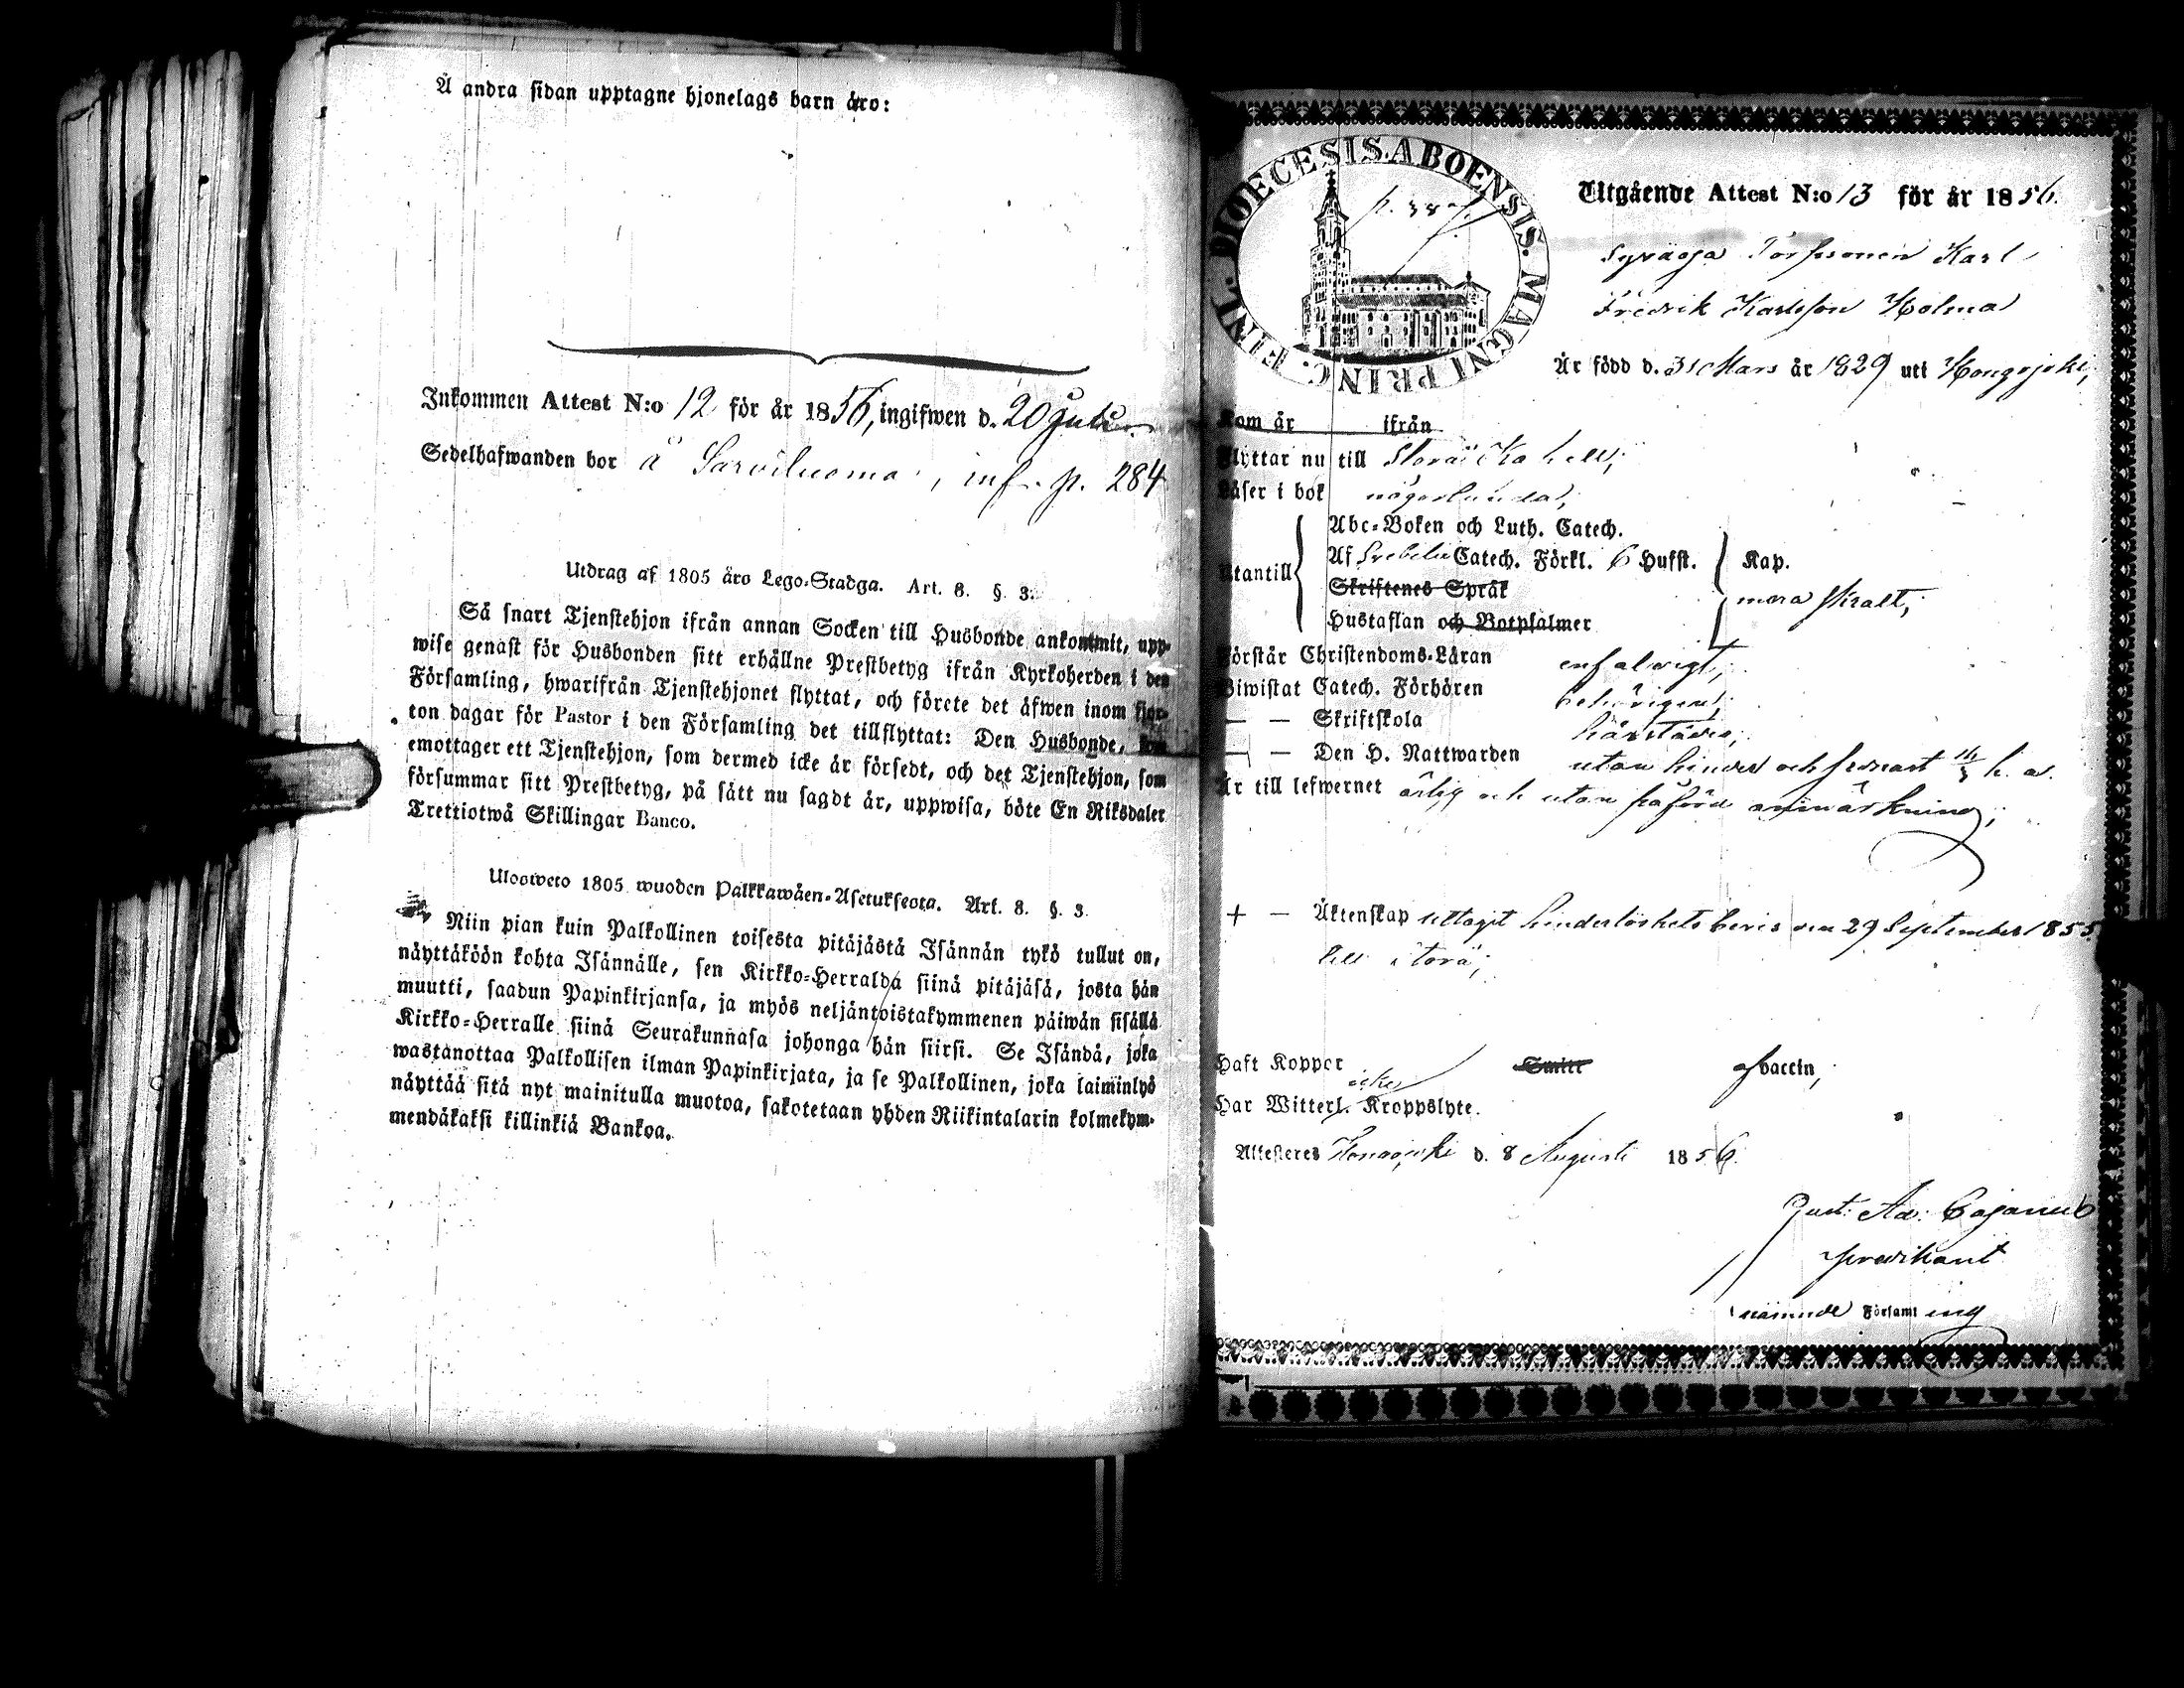 Å andra sidan upptagne hjonelags barn äro:
Inkommen Attest N:o 12 för år 1856, ingifwen d. 20 Juli
Sedelhafwanden bor å Sarviluoma, inf. p. 284
Utdrag af 1805 års Lego-Stadga. Art. 8. §. 3.
Så snart Tjenstehjon ifrån annan Socken till Husbonde ankommit, upp-
wise genast för Husbonden sitt erhållne Prestbetyg ifrån Kyrkoherden i den
Församling, hwarifrån Tjenstehjonet flyttat, och förete det äfwen inom fjor-
ton dagar för Pastor i den Församling det tillflyttat: Den Husbonde, som
emottager ett Tjenstehjon, som dermed icke är försedt, och det Tjenstehjon, som
försummar sitt Prestbetyg, på sätt nu sagdt är, uppwisa, böte En Riksdaler
Trettiotwå Skillingar Banco.
Ulosweto 1805 wuoden Palkkawäen-Asetuksesta. Art. 8. §. 3.
Niin pian kuin Palkollinen toisesta pitäjästä Isännän tykö tullut on,
näyttäköön kohta Isännälle, sen Kirkko-Herralda siinä pitäjäsä, josta hän
muutti, saadun Papinkirjansa, ja myös neljäntoistakymmenen päiwän sisällä
Kirkko-Herralle siinä Seurakunnasa johonga hän siirsi. Se Isändä, joka
wastanottaa Palkollisen ilman Papinkirjata, ja se Palkollinen, joka laiminlyö
näyttää sitä nyt mainitulla muotoa, sakotetaan yhden Riikintalarin kolmekym-
mendäkaksi killinkiä Bankoa.
FINL. DIOECESIS. ABOENSIS. MAGNI PRINC.
Utgående Attest N:o 13 för år 1856.
Karl
Fredrik Karlsson Holma
Är född d. 31 Mars år 1829 uti Hongojoki,
Kom år ifrån
Flyttar nu till Storå
Läser i bok någorlunda,
Abc-Boken och Luth. Catech.
Af Svebelii Catech. Förkl. 6 Hufst. Kap.
Utantill
Skriftenes Språk
mera skralt,
Hustaflan och Botpsalmer
Förstår Christendoms-Läran enfaldigt,
Biwistat Catech. Förhören behörigen,
— — Skriftskola härstädes,
— — Den H. Nattwarden utan hinder och senast h. a.
Är till lefwernet ärlig och utan påförd anmärkning,
+ — Äktenskap uttagit hinderlöshets bevis den 29 September 1855
till Storå,
Haft Koppor Smitt Vaccin,
icke
Har Witterl. Kroppslyte.
Attesteres Hongojoki d. 8 Augusti 1856.
Gust. Ad. Cajanus
predikant
nämnde Församling